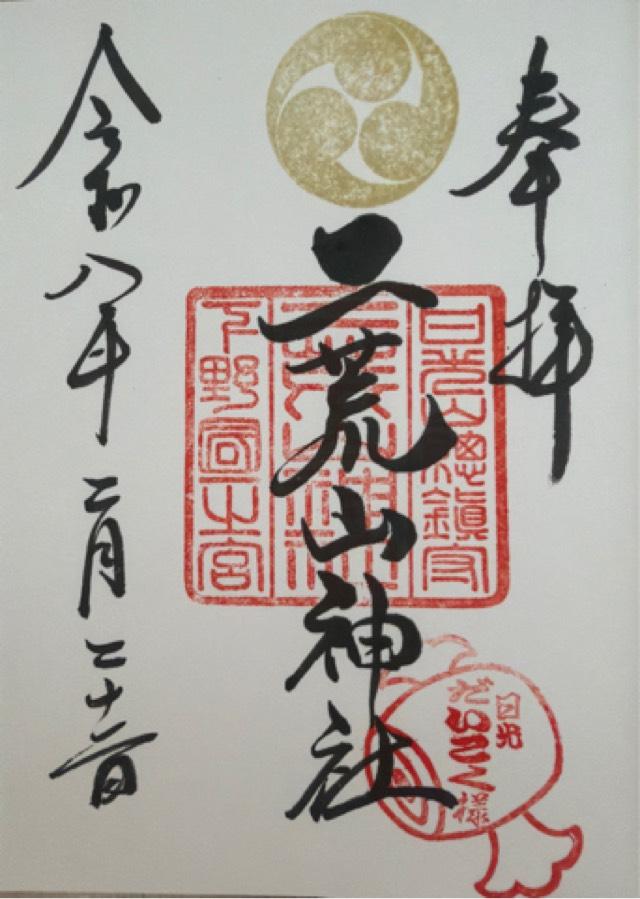 奉拝
日光山總鎮守
二荒山神社
下野國一宮
二荒山神社
日光
だいこく様
令和八年二月二十